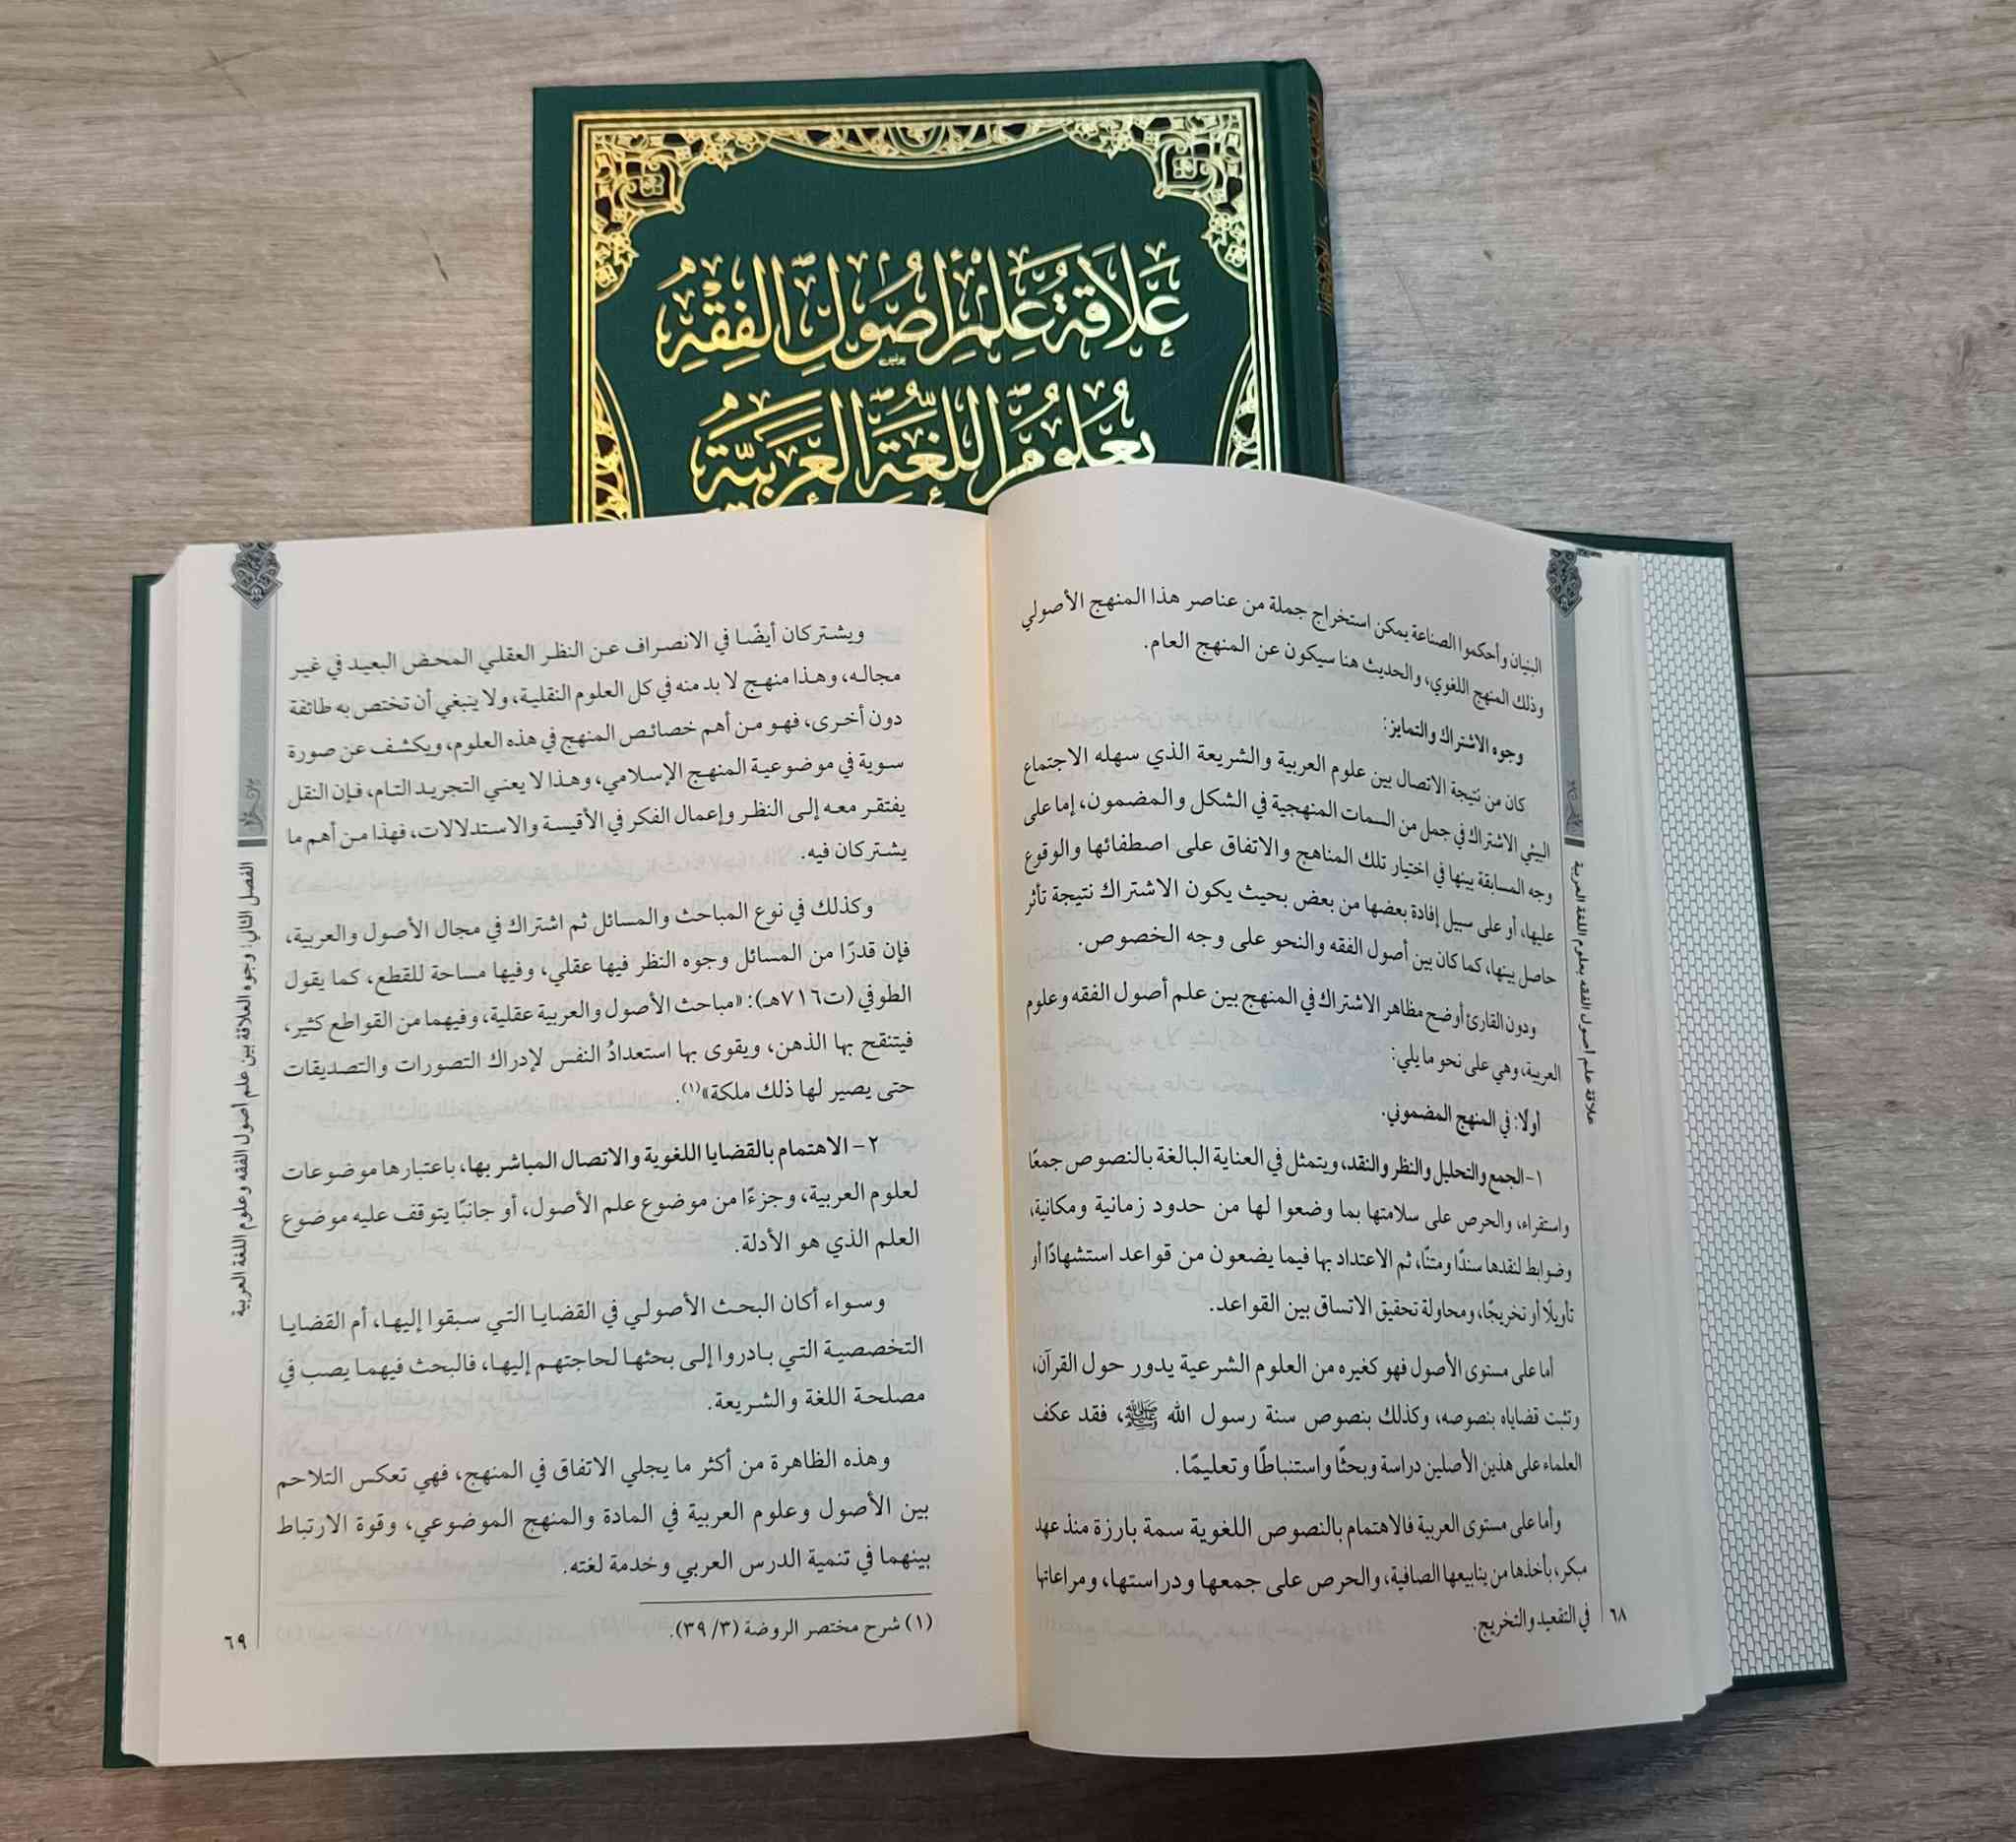 علاقة علم أصول الفقه
بعلوم اللغة العربية
علاقة علم أصول الفقه بعلوم اللغة العربية
البنيان وأحكموا الصناعة يمكن استخراج جملة من عناصر هذا المنهج الأصولي
وذلك المنهج اللغوي، والحديث هنا سيكون عن المنهج العام.
وجوه الاشتراك والتمايز:
كان من نتيجة الاتصال بين علوم العربية والشريعة الذي سهله الاجتماع
البيئي الاشتراك في جمل من السمات المنهجية في الشكل والمضمون، إما على
وجه المسابقة بينها في اختيار تلك المناهج والاتفاق على اصطفائها والوقوع
عليها، أو على سبيل إفادة بعضها من بعض بحيث يكون الاشتراك نتيجة تأثر
حاصل بينها، كما كان بين أصول الفقه والنحو على وجه الخصوص.
ودون القارئ أوضح مظاهر الاشتراك في المنهج بين علم أصول الفقه وعلوم
العربية، وهي على نحو ما يلي:
أولًا: في المنهج المضموني.
١- الجمع والتحليل والنظر والنقد، ويتمثل في العناية البالغة بالنصوص جمعًا
واستقراء، والحرص على سلامتها بما وضعوا لها من حدود زمانية ومكانية،
وضوابط لنقدها سندًا ومتنًا، ثم الاعتداد بها فيما يضعون من قواعد استشهادًا أو
تأويلًا أو تخريجًا، ومحاولة تحقيق الاتساق بين القواعد.
أما على مستوى الأصول فهو كغيره من العلوم الشرعية يدور حول القرآن،
وتثبت قضاياه بنصوصه، وكذلك بنصوص سنة رسول الله ﷺ، فقد عكف
العلماء على هذين الأصلين دراسة وبحثًا واستنباطًا وتعليمًا.
وأما على مستوى العربية فالاهتمام بالنصوص اللغوية سمة بارزة منذ عهد
مبكر، بأخذها من ينابيعها الصافية، والحرص على جمعها ودراستها، ومراعاتها
في التقعيد والتخريج.
٦٨
الفصل الثاني: وجوه العلاقة بين علم أصول الفقه وعلوم اللغة العربية
ويشتركان أيضًا في الانصراف عن النظر العقلي المحض البعيد في غير
مجاله، وهذا منهج لا بد منه في كل العلوم النقلية، ولا ينبغي أن تختص به طائفة
دون أخرى، فهو من أهم خصائص المنهج في هذه العلوم، ويكشف عن صورة
سوية في موضوعية المنهج الإسلامي، وهذا لا يعني التجريد التام، فإن النقل
يفتقر معه إلى النظر وإعمال الفكر في الأقيسة والاستدلالات، فهذا من أهم ما
يشتركان فيه.
وكذلك في نوع المباحث والمسائل ثم اشتراك في مجال الأصول والعربية،
فإن قدرًا من المسائل وجوه النظر فيها عقلي، وفيها مساحة للقطع، كما يقول
الطوفي (ت٧١٦هـ): «مباحث الأصول والعربية عقلية، وفيهما من القواطع كثير،
فيتنقح بها الذهن، ويقوى بها استعدادُ النفس لإدراك التصورات والتصديقات
حتى يصير لها ذلك ملكة»(١).
٢- الاهتمام بالقضايا اللغوية والاتصال المباشر بها، باعتبارها موضوعات
لعلوم العربية، وجزءًا من موضوع علم الأصول، أو جانبًا يتوقف عليه موضوع
العلم الذي هو الأدلة.
وسواء أكان البحث الأصولي في القضايا التي سبقوا إليها، أم القضايا
التخصصية التي بادروا إلى بحثها لحاجتهم إليها، فالبحث فيهما يصب في
مصلحة اللغة والشريعة.
وهذه الظاهرة من أكثر ما يجلي الاتفاق في المنهج، فهي تعكس التلاحم
بين الأصول وعلوم العربية في المادة والمنهج الموضوعي، وقوة الارتباط
بينهما في تنمية الدرس العربي وخدمة لغته.
(١) شرح مختصر الروضة (٣/ ٣٩).
٦٩